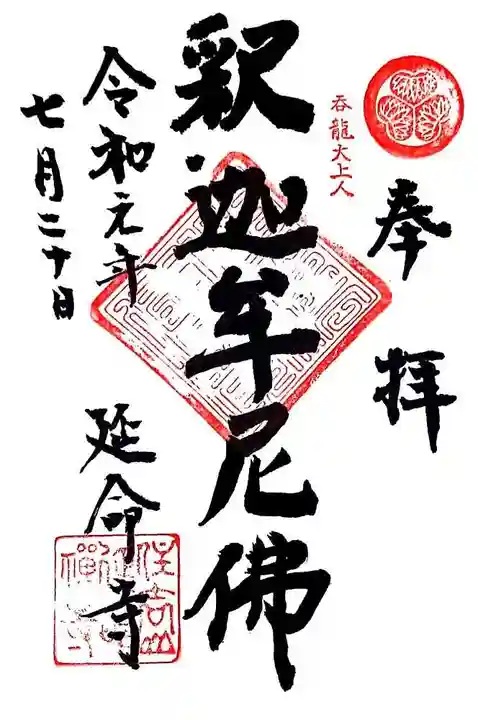 奉拝
呑龍大上人
釈迦牟尼佛
令和元年
七月二十日
延命寺